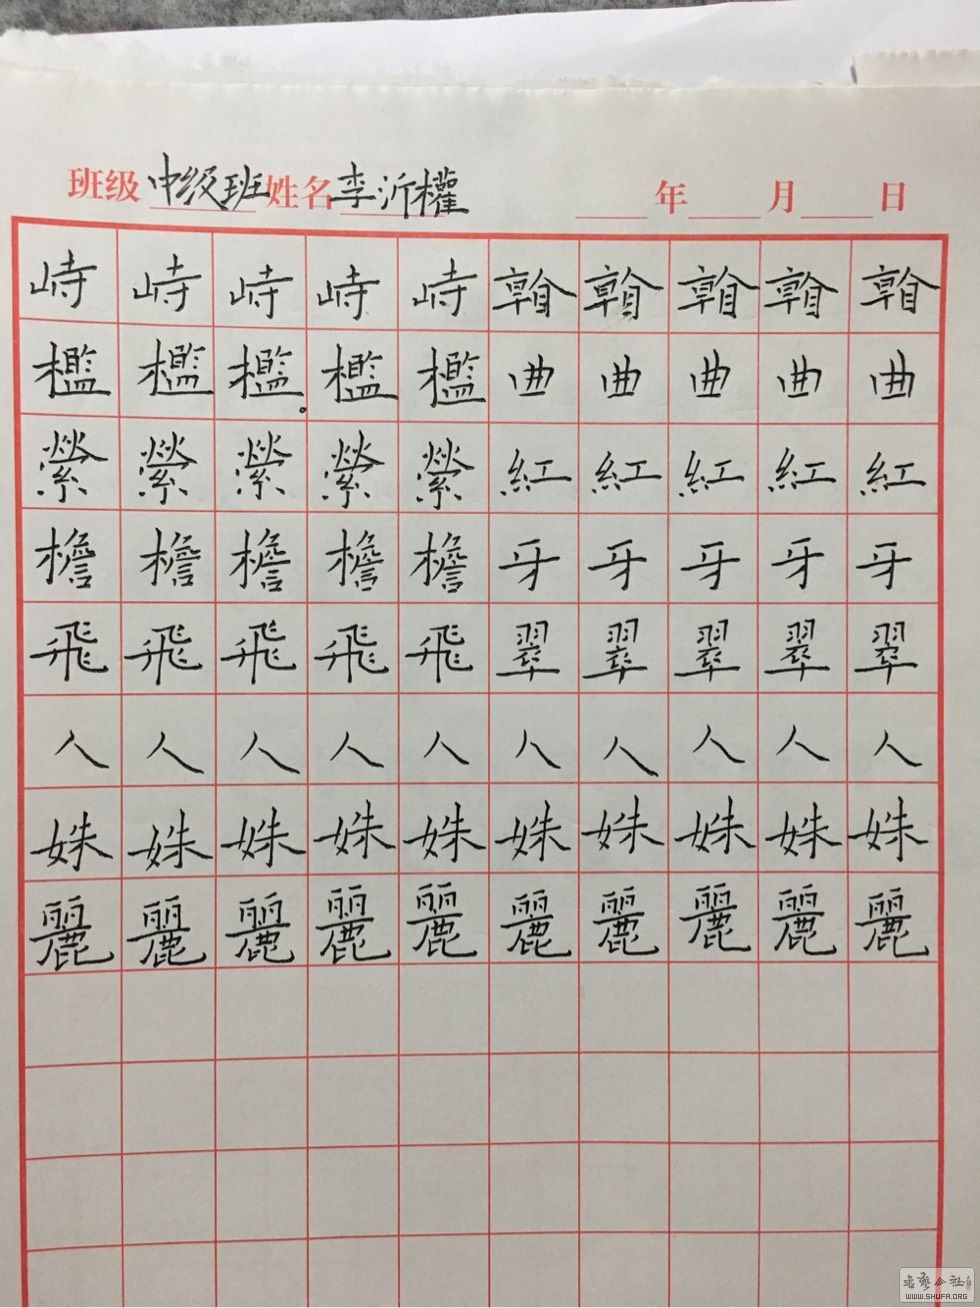 班级 中级班 姓名 李沂權 年 月 日
峙峙峙峙峙𥉼𥉼𥉼𥉼𥉼
檻檻檻檻檻曲曲曲曲曲
縈縈縈縈縈紅紅紅紅紅
檐檐檐檐檐牙牙牙牙牙
飛飛飛飛飛翠翠翠翠翠
人人人人人人人人人人
姝姝姝姝姝姝姝姝姝姝
麗麗麗麗麗麗麗麗麗麗
書藝公社
WWW.SHUFA.ORG